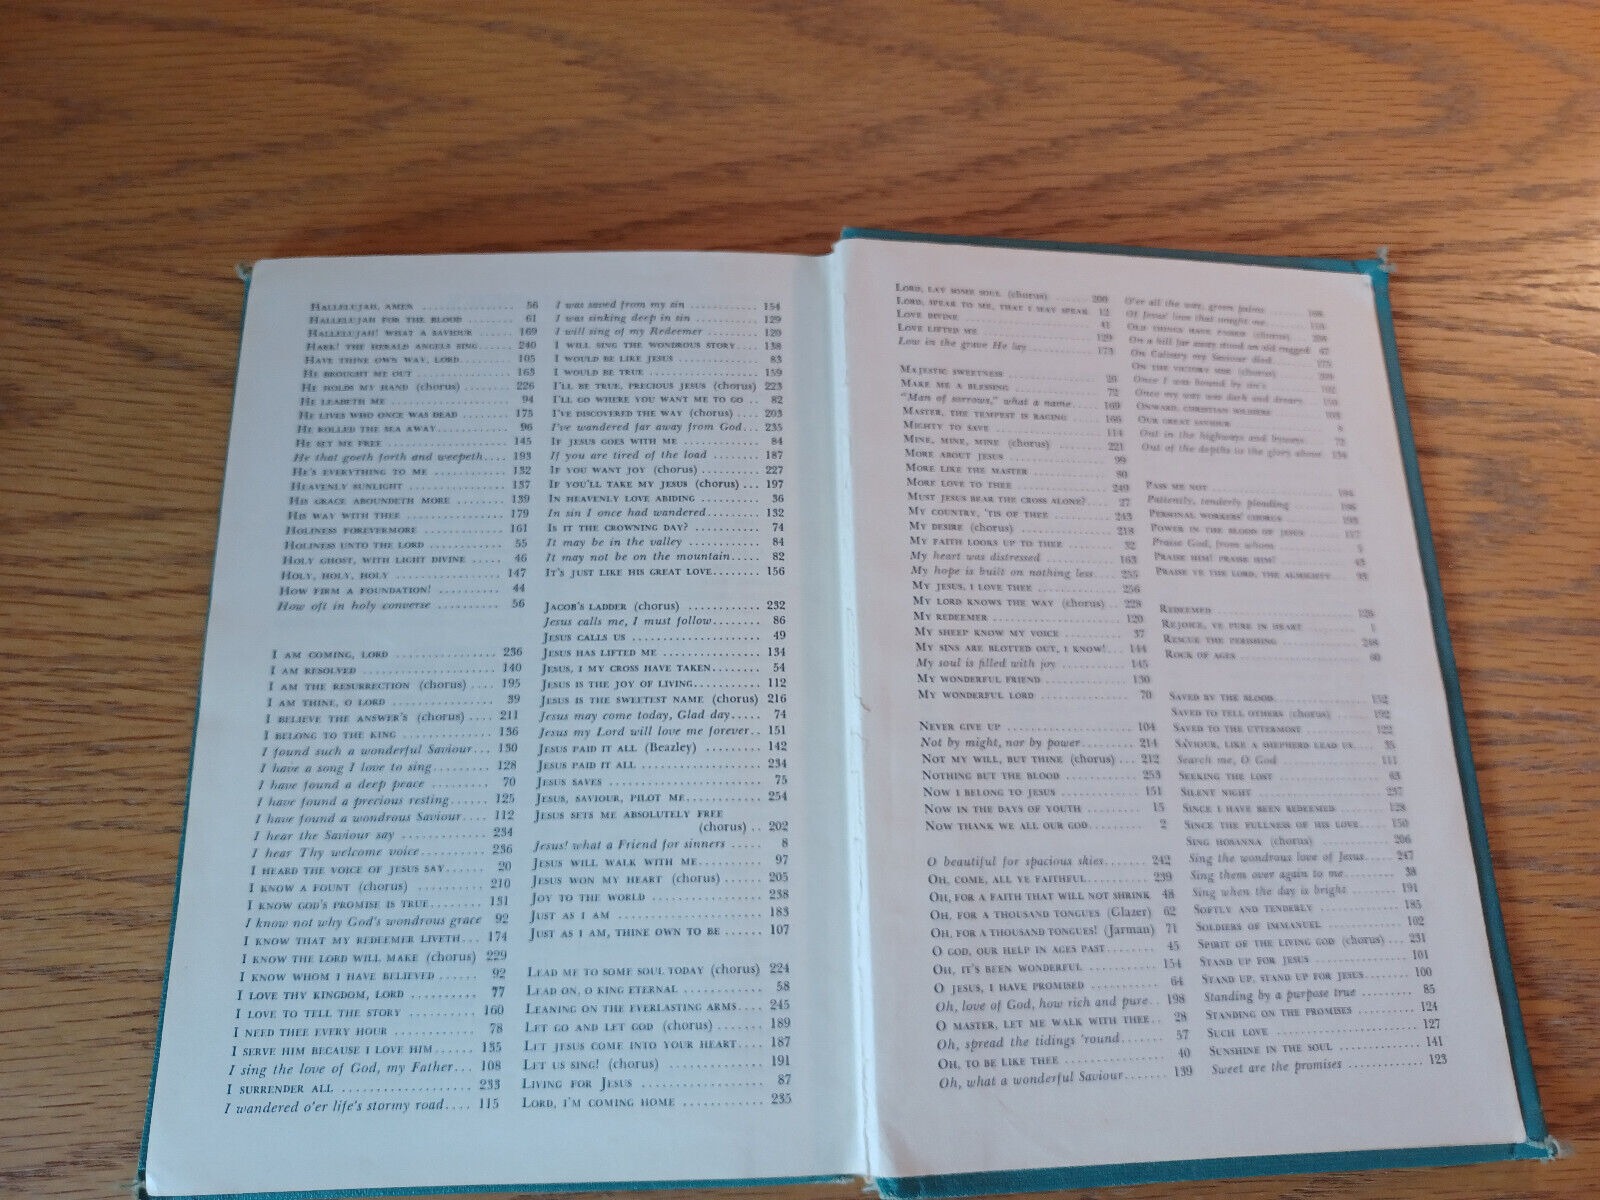 HALLELUJAH, AMEN .......... 56
HALLELUJAH FOR THE BLOOD .......... 61
HALLELUJAH! WHAT A SAVIOUR ..... 169
HARK! THE HERALD ANGELS SING ... 240
HAVE THINE OWN WAY, LORD ........ 105
HE BROUGHT ME OUT .............. 163
HE HOLDS MY HAND (chorus) ....... 226
HE LEADETH ME .................. 94
HE LIVES WHO ONCE WAS DEAD ...... 175
HE ROLLED THE SEA AWAY .......... 96
HE SET ME FREE ................. 145
He that goeth forth and weepeth.... 193
HE'S EVERYTHING TO ME .......... 132
HEAVENLY SUNLIGHT .............. 137
HIS GRACE ABOUNDETH MORE ........ 139
HIS WAY WITH THEE .............. 179
HOLINESS FOREVERMORE ........... 161
HOLINESS UNTO THE LORD .......... 55
HOLY GHOST, WITH LIGHT DIVINE ..... 46
HOLY, HOLY, HOLY ............... 147
HOW FIRM A FOUNDATION! ......... 44
How oft in holy converse ........... 56
I AM COMING, LORD .............. 236
I AM RESOLVED .................. 140
I AM THE RESURRECTION (chorus) .... 195
I AM THINE, O LORD ............. 39
I BELIEVE THE ANSWER'S (chorus) .... 211
I BELONG TO THE KING ........... 136
I found such a wonderful Saviour... 130
I have a song I love to sing......... 128
I have found a deep peace ......... 70
I have found a precious resting...... 125
I have found a wondrous Saviour.... 112
I hear the Saviour say ............ 234
I hear Thy welcome voice.......... 236
I HEARD THE VOICE OF JESUS SAY...... 20
I KNOW A FOUNT (chorus) ......... 210
I KNOW GOD'S PROMISE IS TRUE....... 131
I know not why God's wondrous grace 92
I KNOW THAT MY REDEEMER LIVETH... 174
I KNOW THE LORD WILL MAKE (chorus) 229
I KNOW WHOM I HAVE BELIEVED ...... 92
I LOVE THY KINGDOM, LORD .......... 77
I LOVE TO TELL THE STORY .......... 160
I NEED THEE EVERY HOUR ........... 78
I SERVE HIM BECAUSE I LOVE HIM...... 135
I sing the love of God, my Father... 108
I SURRENDER ALL ................ 233
I wandered o'er life's stormy road.... 115
I was saved from my sin ........... 154
I was sinking deep in sin ........... 129
I will sing of my Redeemer ........ 120
I WILL SING THE WONDROUS STORY... 138
I WOULD BE LIKE JESUS ........... 83
I WOULD BE TRUE ................ 159
I'LL BE TRUE, PRECIOUS JESUS (chorus) 223
I'LL GO WHERE YOU WANT ME TO GO .. 82
I'VE DISCOVERED THE WAY (chorus) ... 203
I've wandered far away from God... 235
IF JESUS GOES WITH ME ........... 84
If you are tired of the load ........ 187
IF YOU WANT JOY (chorus) ........ 227
IF YOU'LL TAKE MY JESUS (chorus) ... 197
IN HEAVENLY LOVE ABIDING ........ 36
In sin I once had wandered......... 132
IS IT THE CROWNING DAY? ......... 74
It may be in the valley ............ 84
It may not be on the mountain..... 82
IT'S JUST LIKE HIS GREAT LOVE........ 156
JACOB'S LADDER (chorus) ........... 232
Jesus calls me, I must follow........ 86
JESUS CALLS US .................. 49
JESUS HAS LIFTED ME ............. 134
JESUS, I MY CROSS HAVE TAKEN....... 54
JESUS IS THE JOY OF LIVING.......... 112
JESUS IS THE SWEETEST NAME (chorus) 216
Jesus may come today, Glad day..... 74
Jesus my Lord will love me forever.. 151
JESUS PAID IT ALL (Beazley) ........ 142
JESUS PAID IT ALL ................ 234
JESUS SAVES .................... 75
JESUS, SAVIOUR, PILOT ME........... 254
JESUS SETS ME ABSOLUTELY FREE
(chorus) .. 202
Jesus! what a Friend for sinners ..... 8
JESUS WILL WALK WITH ME......... 97
JESUS WON MY HEART (chorus) ..... 205
JOY TO THE WORLD ............... 238
JUST AS I AM ................... 183
JUST AS I AM, THINE OWN TO BE ...... 107
LEAD ME TO SOME SOUL TODAY (chorus) 224
LEAD ON, O KING ETERNAL .......... 58
LEANING ON THE EVERLASTING ARMS.... 245
LET GO AND LET GOD (chorus) ....... 189
LET JESUS COME INTO YOUR HEART.... 187
LET US SING! (chorus) ............. 191
LIVING FOR JESUS ................ 87
LORD, I'M COMING HOME ............ 235
LORD, LAY SOME SOUL (chorus) ...... 200
LORD, SPEAK TO ME, THAT I MAY SPEAK 12
LOVE DIVINE .................... 41
LOVE LIFTED ME ................. 129
Low in the grave He lay .......... 173
MAJESTIC SWEETNESS .............. 29
MAKE ME A BLESSING .............. 72
"Man of sorrows," what a name..... 169
MASTER, THE TEMPEST IS RAGING ..... 166
MIGHTY TO SAVE ................. 114
MINE, MINE, MINE (chorus) ........ 221
MORE ABOUT JESUS ............... 99
MORE LIKE THE MASTER ............ 80
MORE LOVE TO THEE .............. 249
MUST JESUS BEAR THE CROSS ALONE?... 27
MY COUNTRY, 'TIS OF THEE ......... 243
MY DESIRE (chorus) .............. 218
MY FAITH LOOKS UP TO THEE ....... 32
My heart was distressed .......... 163
My hope is built on nothing less.... 255
MY JESUS, I LOVE THEE ........... 256
MY LORD KNOWS THE WAY (chorus) .. 228
MY REDEEMER ................... 120
MY SHEEP KNOW MY VOICE ......... 37
MY SINS ARE BLOTTED OUT, I KNOW!.. 144
My soul is filled with joy .......... 145
MY WONDERFUL FRIEND ........... 130
MY WONDERFUL LORD ............. 70
NEVER GIVE UP .................. 104
Not by might, nor by power......... 214
NOT MY WILL, BUT THINE (chorus) ... 212
NOTHING BUT THE BLOOD .......... 253
NOW I BELONG TO JESUS ........... 151
NOW IN THE DAYS OF YOUTH ........ 15
NOW THANK WE ALL OUR GOD......... 2
O beautiful for spacious skies....... 242
OH, COME, ALL YE FAITHFUL......... 239
OH, FOR A FAITH THAT WILL NOT SHRINK 48
OH, FOR A THOUSAND TONGUES (Glazer) 62
OH, FOR A THOUSAND TONGUES! (Jarman) 71
O GOD, OUR HELP IN AGES PAST....... 45
OH, IT'S BEEN WONDERFUL .......... 154
O JESUS, I HAVE PROMISED .......... 64
Oh, love of God, how rich and pure.. 198
O MASTER, LET ME WALK WITH THEE.. 28
Oh, spread the tidings 'round....... 57
OH, TO BE LIKE THEE ............. 40
Oh, what a wonderful Saviour....... 139
O'er all the way, green palms
Of Jesus' love that sought me...
OLD THINGS HAVE PASSED (chorus)
On a hill far away stood an old rugged 67
On Calvary my Saviour died
ON THE VICTORY SIDE (chorus)
Once I was bound by sin's
Once my way was dark and dreary...
ONWARD, CHRISTIAN SOLDIERS
OUR GREAT SAVIOUR ............. 8
Out in the highways and byways... 72
Out of the depths to the glory above
PASS ME NOT
Patiently, tenderly pleading ....... 186
PERSONAL WORKERS' CHORUS ....... 193
POWER IN THE BLOOD OF JESUS ..... 117
Praise God, from whom
PRAISE HIM! PRAISE HIM! ......... 43
PRAISE YE THE LORD, THE ALMIGHTY... 93
REDEEMED ..................... 126
REJOICE, YE PURE IN HEART ........ 1
RESCUE THE PERISHING ............ 248
ROCK OF AGES .................. 60
SAVED BY THE BLOOD ............. 152
SAVED TO TELL OTHERS (chorus) ..... 192
SAVED TO THE UTTERMOST .......... 122
SAVIOUR, LIKE A SHEPHERD LEAD US.... 35
Search me, O God ............... 111
SEEKING THE LOST ............... 63
SILENT NIGHT .................. 237
SINCE I HAVE BEEN REDEEMED ...... 128
SINCE THE FULLNESS OF HIS LOVE..... 150
SING HOSANNA (chorus) ........... 206
Sing the wondrous love of Jesus.... 247
Sing them over again to me........ 38
Sing when the day is bright ....... 191
SOFTLY AND TENDERLY ............ 185
SOLDIERS OF IMMANUEL ........... 102
SPIRIT OF THE LIVING GOD (chorus)... 231
STAND UP FOR JESUS .............. 101
STAND UP, STAND UP FOR JESUS....... 100
Standing by a purpose true ......... 85
STANDING ON THE PROMISES ........ 124
SUCH LOVE ..................... 127
SUNSHINE IN THE SOUL ............ 141
Sweet are the promises ............ 123